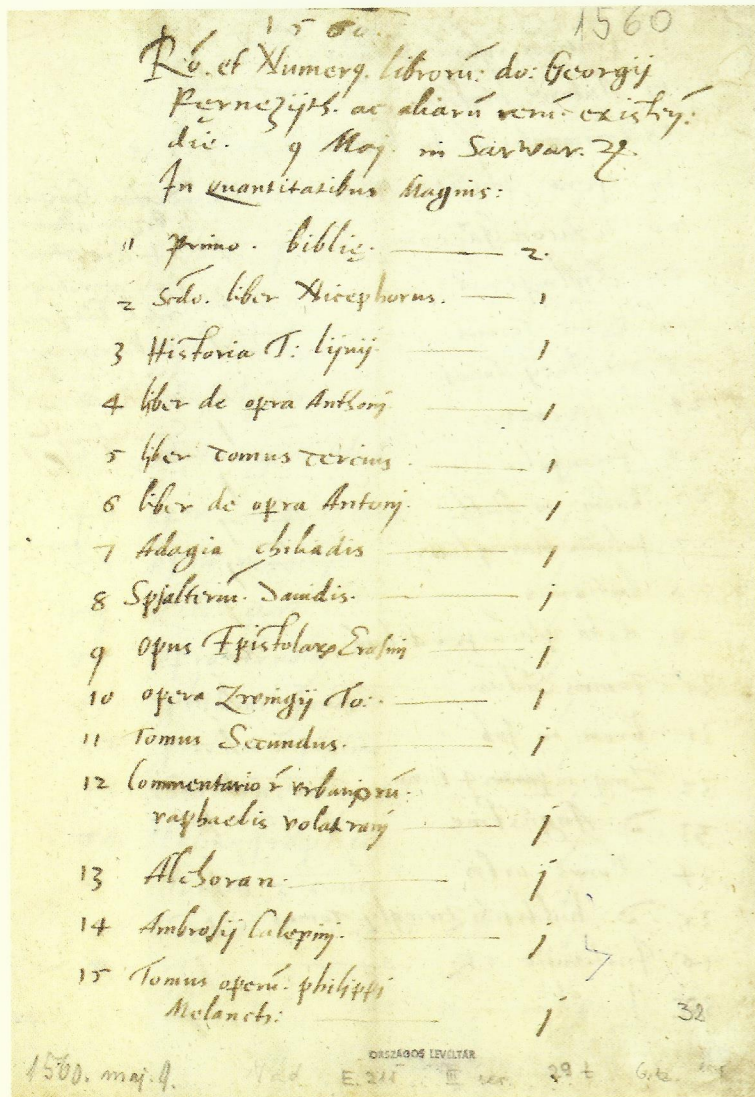 1560.
1560
Rō. et Numerq. librorū: do: Georgij
Pernezijth. ac aliarū rerū existēn:
die. 9 Maj. in Sarwar.
In quantitatibus Magnis:
1 Primo. biblię. 2.
2 Scdo. liber Nicephorus. 1
3 Historia T: lijuij 1
4 liber de opera Anthonj 1
5 liber Tomus Tercius 1
6 liber de opera Antonj. 1
7 Adagia chiliadis 1
8 Spsalteriū. Dauidis. j
9 opus Epistolarꝝ Erasmj j
10 opera Zwingij To: 1
11 Tomus Secundus. j
12 Commentarioꝝ vrbanoꝝ rū.
raphaelis volateranj j
13 Alchoran. j
14 Ambrosij Calepinj. j
15 Tomus operū. philippi
Melancth: j
32
ORSZÁGOS LEVÉLTÁR
1560. maj. 9. E. 211 III ser. 29 t